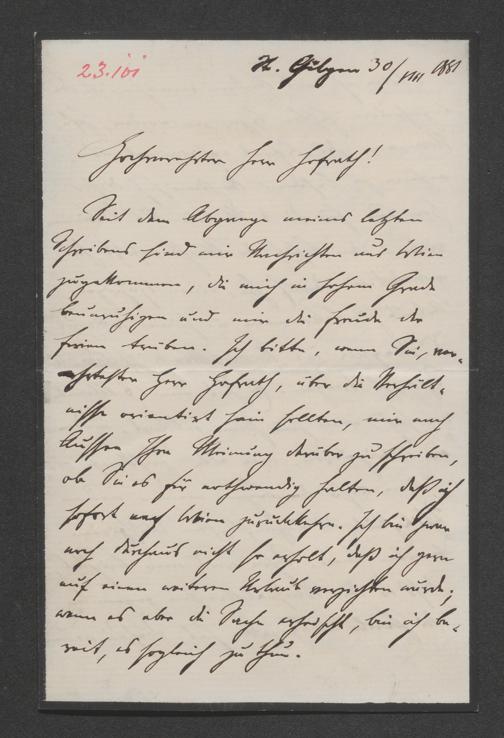 23.101
St. Gilgen 30/VIII 1881
Hochverehrter Herr Hofrath!
Seit dem Abgange meines letzten
Schreibens sind mir Nachrichten aus Wien
zugekommen, die mich in hohem Grade
beunruhigen und mir die Freude der
Ferien trüben. Ich bitte, wenn Sie, ver-
ehrtester Herr Hofrath, über die Verhält-
nisse orientirt sein sollten, mir nach
Aussee Ihre Meinung darüber zu schreiben,
ob Sie es für nothwendig halten, daß ich
sofort nach Wien zurückkehre. Ich bin zwar
noch durchaus nicht so erholt, daß ich gern
auf einen weiteren Urlaub verzichten würde;
wenn es aber die Sache erheischt, bin ich be-
reit, es sogleich zu thun.